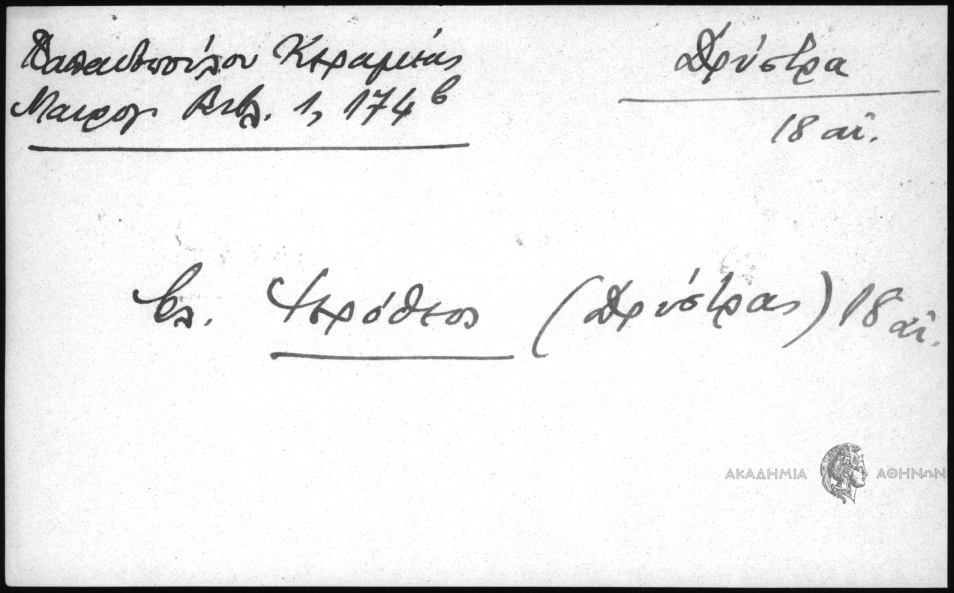 Παπαδοπούλου Κεραμέως
Μαυρογ. Βιβλ. 1, 174β
Δρύστρα
18 αἰ.
βλ. Ἱερόθεος (Δρύστρας) 18 αἰ.
ΑΚΑΔΗΜΙΑ ΑΘΗΝΩΝ